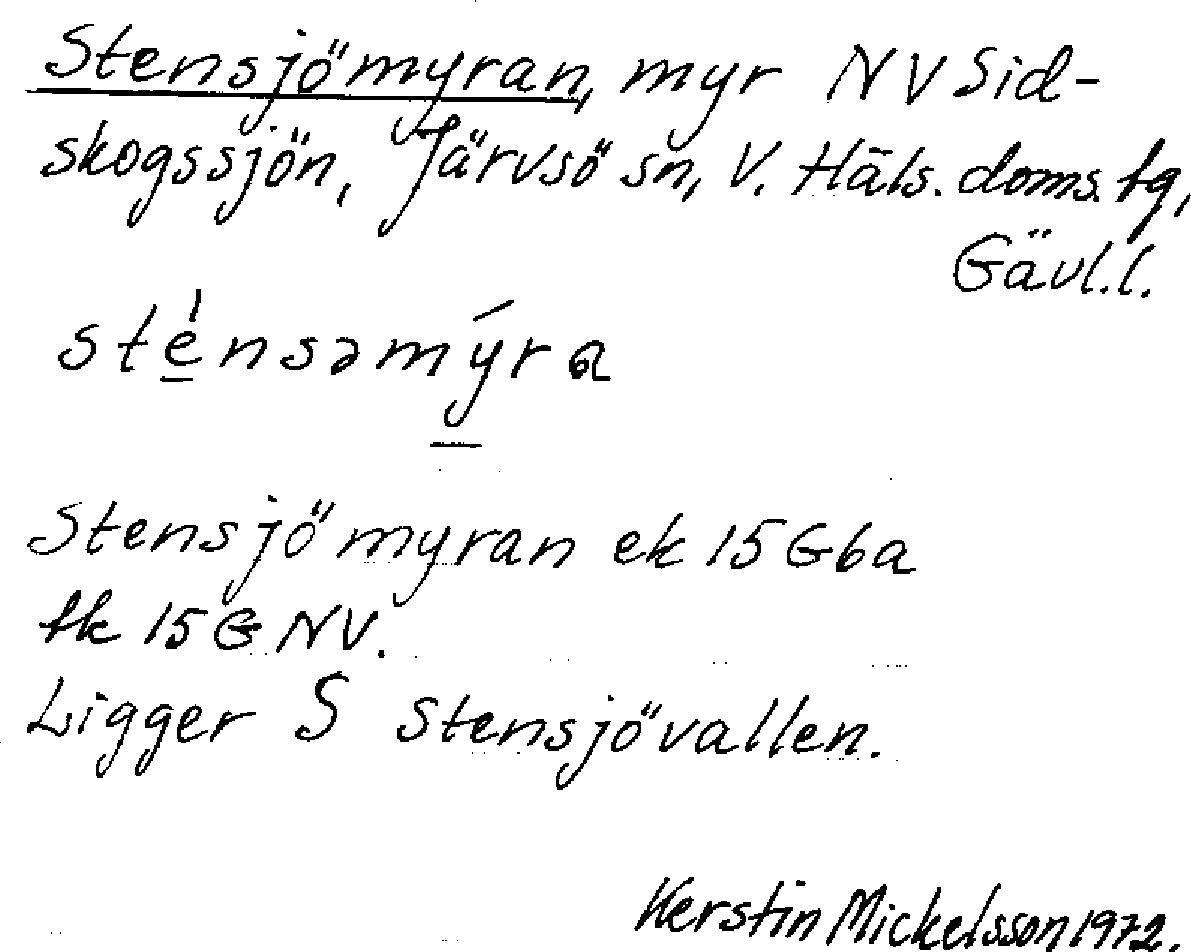 Stensjömyran, myr NV Sid-
skogssjön, Järvsö sn, V. Häls. doms. tg,
Gävl.l.
sténsəmýra
Stensjömyran ek 15 G6a
tk 15 G NV.
Ligger S Stensjövallen.
Kerstin Mickelsson 1972.